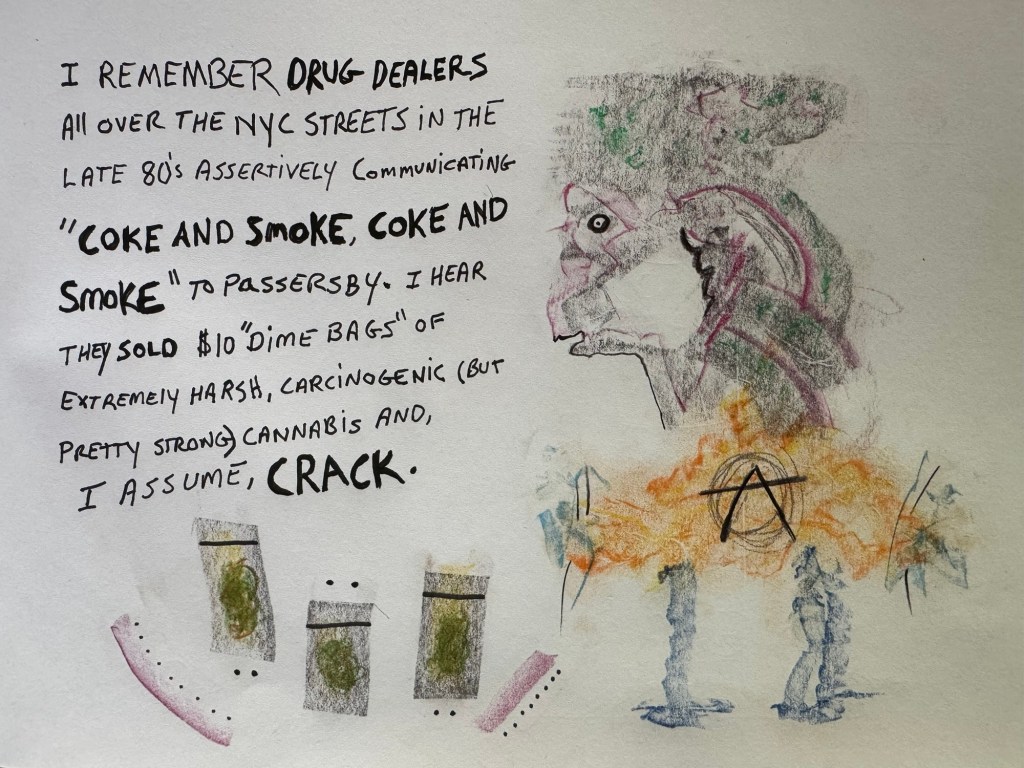 I REMEMBER DRUG DEALERS
All OVER THE NYC STREETS IN THE
LATE 80's ASSERTIVELY COMMUNICATING
"COKE AND SMOKE, COKE AND
SMOKE" TO PASSERSBY. I HEAR
THEY SOLD $10 "DIME BAGS" OF
EXTREMELY HARSH, CARCINOGENIC (BUT
PRETTY STRONG) CANNABIS AND,
I ASSUME, CRACK.
A